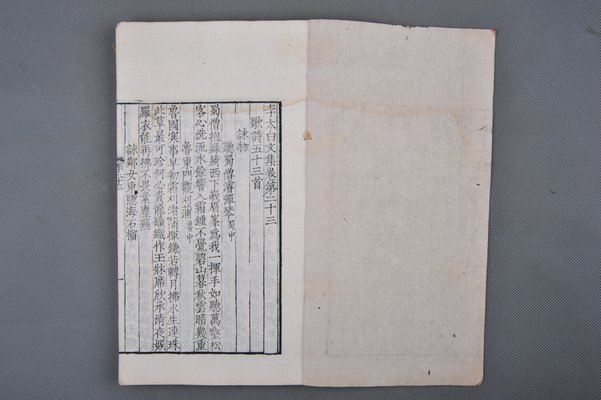 李太白文集卷第二十三
歌詩五十三首
詠物
聽蜀僧濬彈琴蜀中
蜀僧抱綠綺西下峨眉峯為我一揮手如聽萬壑松
客心洗流水餘響入霜鐘不覺碧山暮秋雲暗幾重
魯東門觀刈蒲魯中
魯國寒事早初霜刈渚蒲揮鎌若轉月拂水生連珠
此草最可珍何必貴龍鬚織作玉牀席欣承清夜娛
羅衣能再拂不畏素塵蕪
詠鄰女東窻海石榴